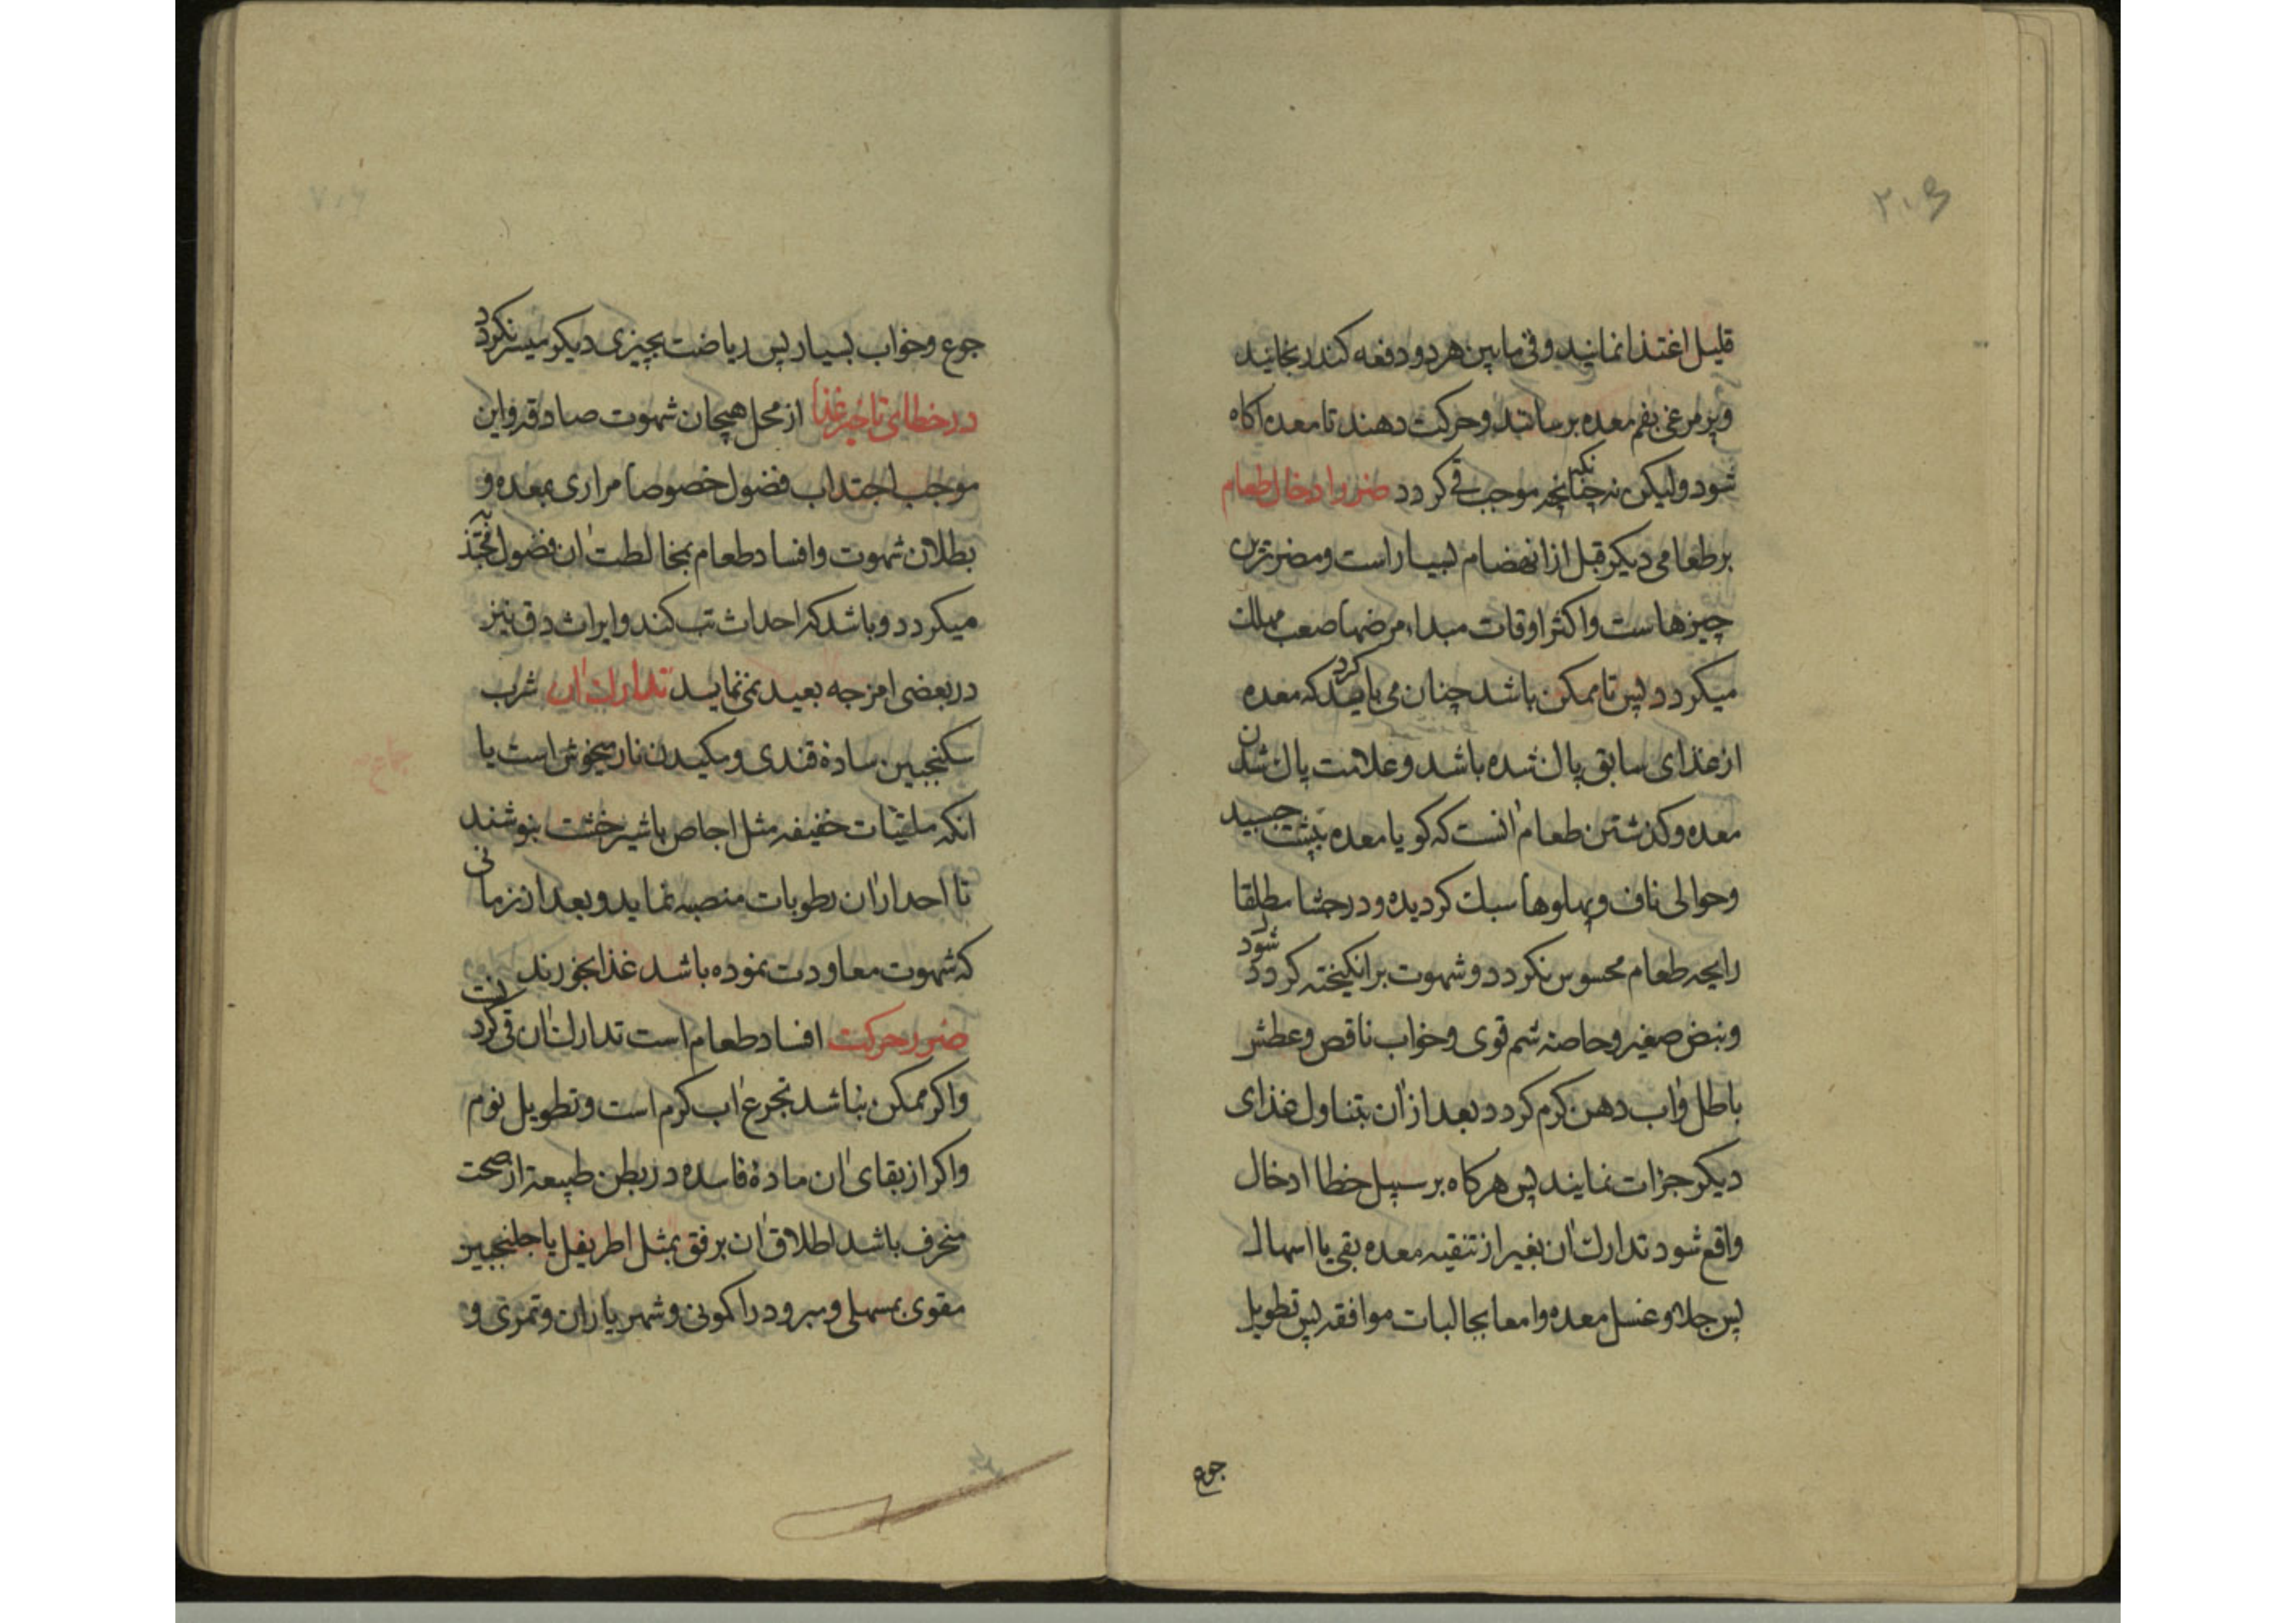 ۲۰۵
قلیل اغتذا نمایند و فی مابین هر دو دفعه کندر بخایند
و پر مرغی بفم معده برسانند و حرکت دهند تا معده اکاه
شود ولیکن نه چنانچه موجب قی کردد ضرر ادخال طعام
بر طعامی دیکر قبل از انهضام بسیار است و مضرترین
چیزهاست و اکثر اوقات مبداء مرضها صعب مهلک
میکردد پس تا ممکن باشد چنان می باید کرد که معده
از غذای سابق پاک شده باشد و علامت پاک شدن
معده و کذشتن طعام آنست که کویا معده بپشت چسبید
و حوالی ناف و پهلوها سبک کردیده و در جشا مطلقا
رایحه طعام محسوس نکردد و شهوت برانکیخته کردد شود
و نبض صغیر و حاصه شم قوی و خواب ناقص و عطش
باطل و آب دهن کرم کردد بعد از آن بتناول غذای
دیکر جرات نمایند پس هرکاه بر سبیل خطا ادخال
واقع شود تدارک آن بغیر از تنقیه معده بقی یا اسهال
پس جلا و غسل معده و امعا بجالبات موافقه پس تطویل
جوع
جوع و خواب بسیار پس ریاضت بچیزی دیکر میسر نکردد
در خطای تاخیر غذا از محل هیجان شهوت صادقه و این
موجب اجتذاب فضول خصوصا مراری بمعده و
بطلان شهوت و افساد طعام بمخالطت آن فضول مجتذبه
میکردد و باشد که احداث تب کند و ایراث دق نیز
در بعضی امزجه بعید نمی نماید تدارک آن شرب
سکنجبین ساده قندی و مکیدن نار میخوش است یا
انکه ملینات خفیفه مثل اجاص یا شیرخشت بنوشند
تا احدار آن رطوبات منصبه نماید و بعد از زمانی
که شهوت معاودت نموده باشد غذا بخورند
ضرر حرکت افساد طعام است تدارک آن قی کردنست
و اکر ممکن نباشد تجرع آب کرم است و تطویل نوم
و اکر از بقای آن ماده فاسده در بطن طبیعة از صحت
منحرف باشد اطلاق آن برفق بمثل اطریفل یا جلنجبین
مقوی بمسهلی و مبرود را کمونی و شهریاران و تمری و